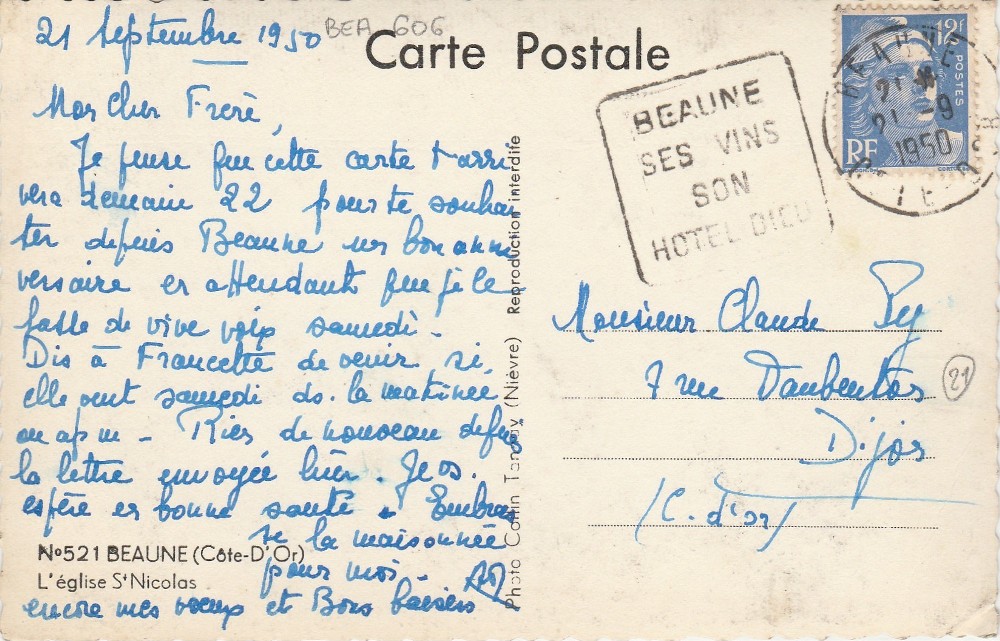 21 Septembre 1950
BEA 606
Carte Postale
Mon cher Frère,
Je pense que cette carte t'arri
vera demain 22 pour te souhai
ter depuis Beaune un bon anni
versaire en attendant que je le
fasse de vive voix samedi -
Dis à Francette de venir si,
elle veut samedi ds. la matinée
ou ap m - Rien de nouveau depuis
la lettre envoyée hier. Je vs.
espère en bonne santé - Embras
se la maisonnée
pour moi -
encore mes voeux et Bons baisers
No521 BEAUNE (Côte-D'Or)
L'église St Nicolas
Photo Combier (Nièvre) Reproduction interdite
BEAUNE
SES VINS
SON
HOTEL DIEU
12F
POSTES
RF
BEAUNE
21 -9
1950
Monsieur Claude Py
7 rue Daubenton
Dijon
(C. d'or)
21